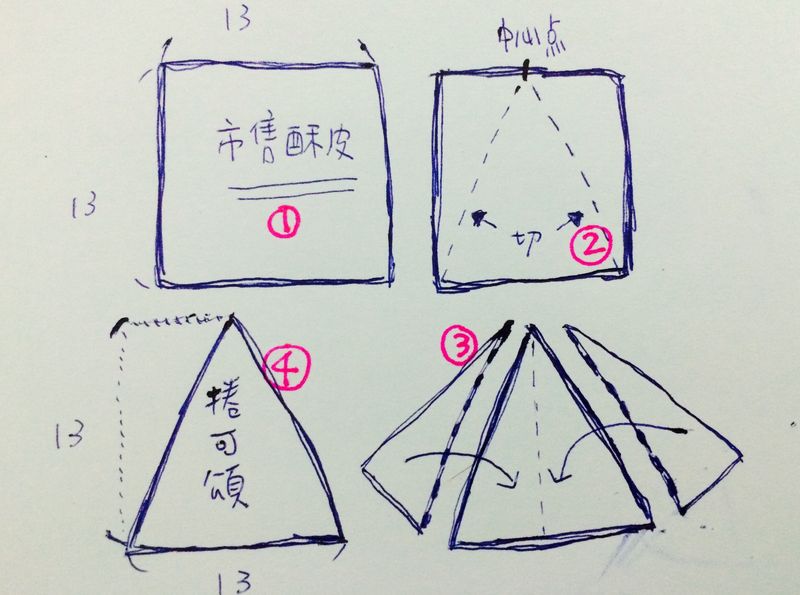 13
13
市售酥皮
①
中心点
切
②
13
捲可頌
④
13
③